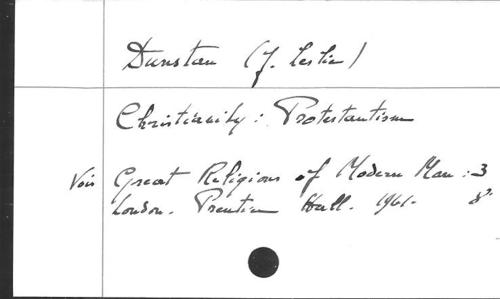 Dunstan (J. Leslie)
Christianity: Protestantism
Voir Great Religions of Modern Man : 3
London. Prentice Hall. 1961. 8°